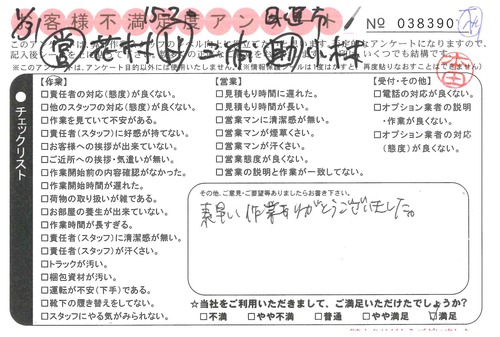 お客様不満足度アンケート
No 038390
1/31 営 花村 山 三向 副 小林
1530
日進市
【作業】
□責任者の対応(態度)が良くない。
□他のスタッフの対応(態度)が良くない。
□作業を見ていて不安がある。
□責任者(スタッフ)に好感が持てない。
□お客様への挨拶が出来ていない。
□ご近所への挨拶・気遣いが無い。
□作業開始前の内容確認がなかった。
□作業開始時間が遅れた。
□荷物の取り扱いが雑である。
□お部屋の養生が出来ていない。
□作業時間が長すぎる。
□責任者(スタッフ)に清潔感が無い。
□責任者(スタッフ)が汗くさい。
□トラックが汚い。
□梱包資材が汚い。
□運転が不安(下手)である。
□靴下の履き替えをしてない。
□スタッフにやる気がみられない。
【営業】
□見積もり時間に遅れた。
□見積もり時間が長い。
□営業マンに清潔感が無い。
□営業マンが煙草くさい。
□営業マンが汗くさい。
□営業態度が良くない。
□営業の説明と作業が一致してない。
【受付・その他】
□電話の対応が良くない。
□オプション業者の説明
・作業が良くない。
□オプション業者の対応
(態度)が良くない。
チェックリスト
その他、ご意見・ご要望等ありましたらお書き下さい。
素早い作業ありがとうございました。
☆当社をご利用いただきまして、ご満足いただけたでしょうか?
□不満 □やや不満 □普通 □やや満足 ☑満足